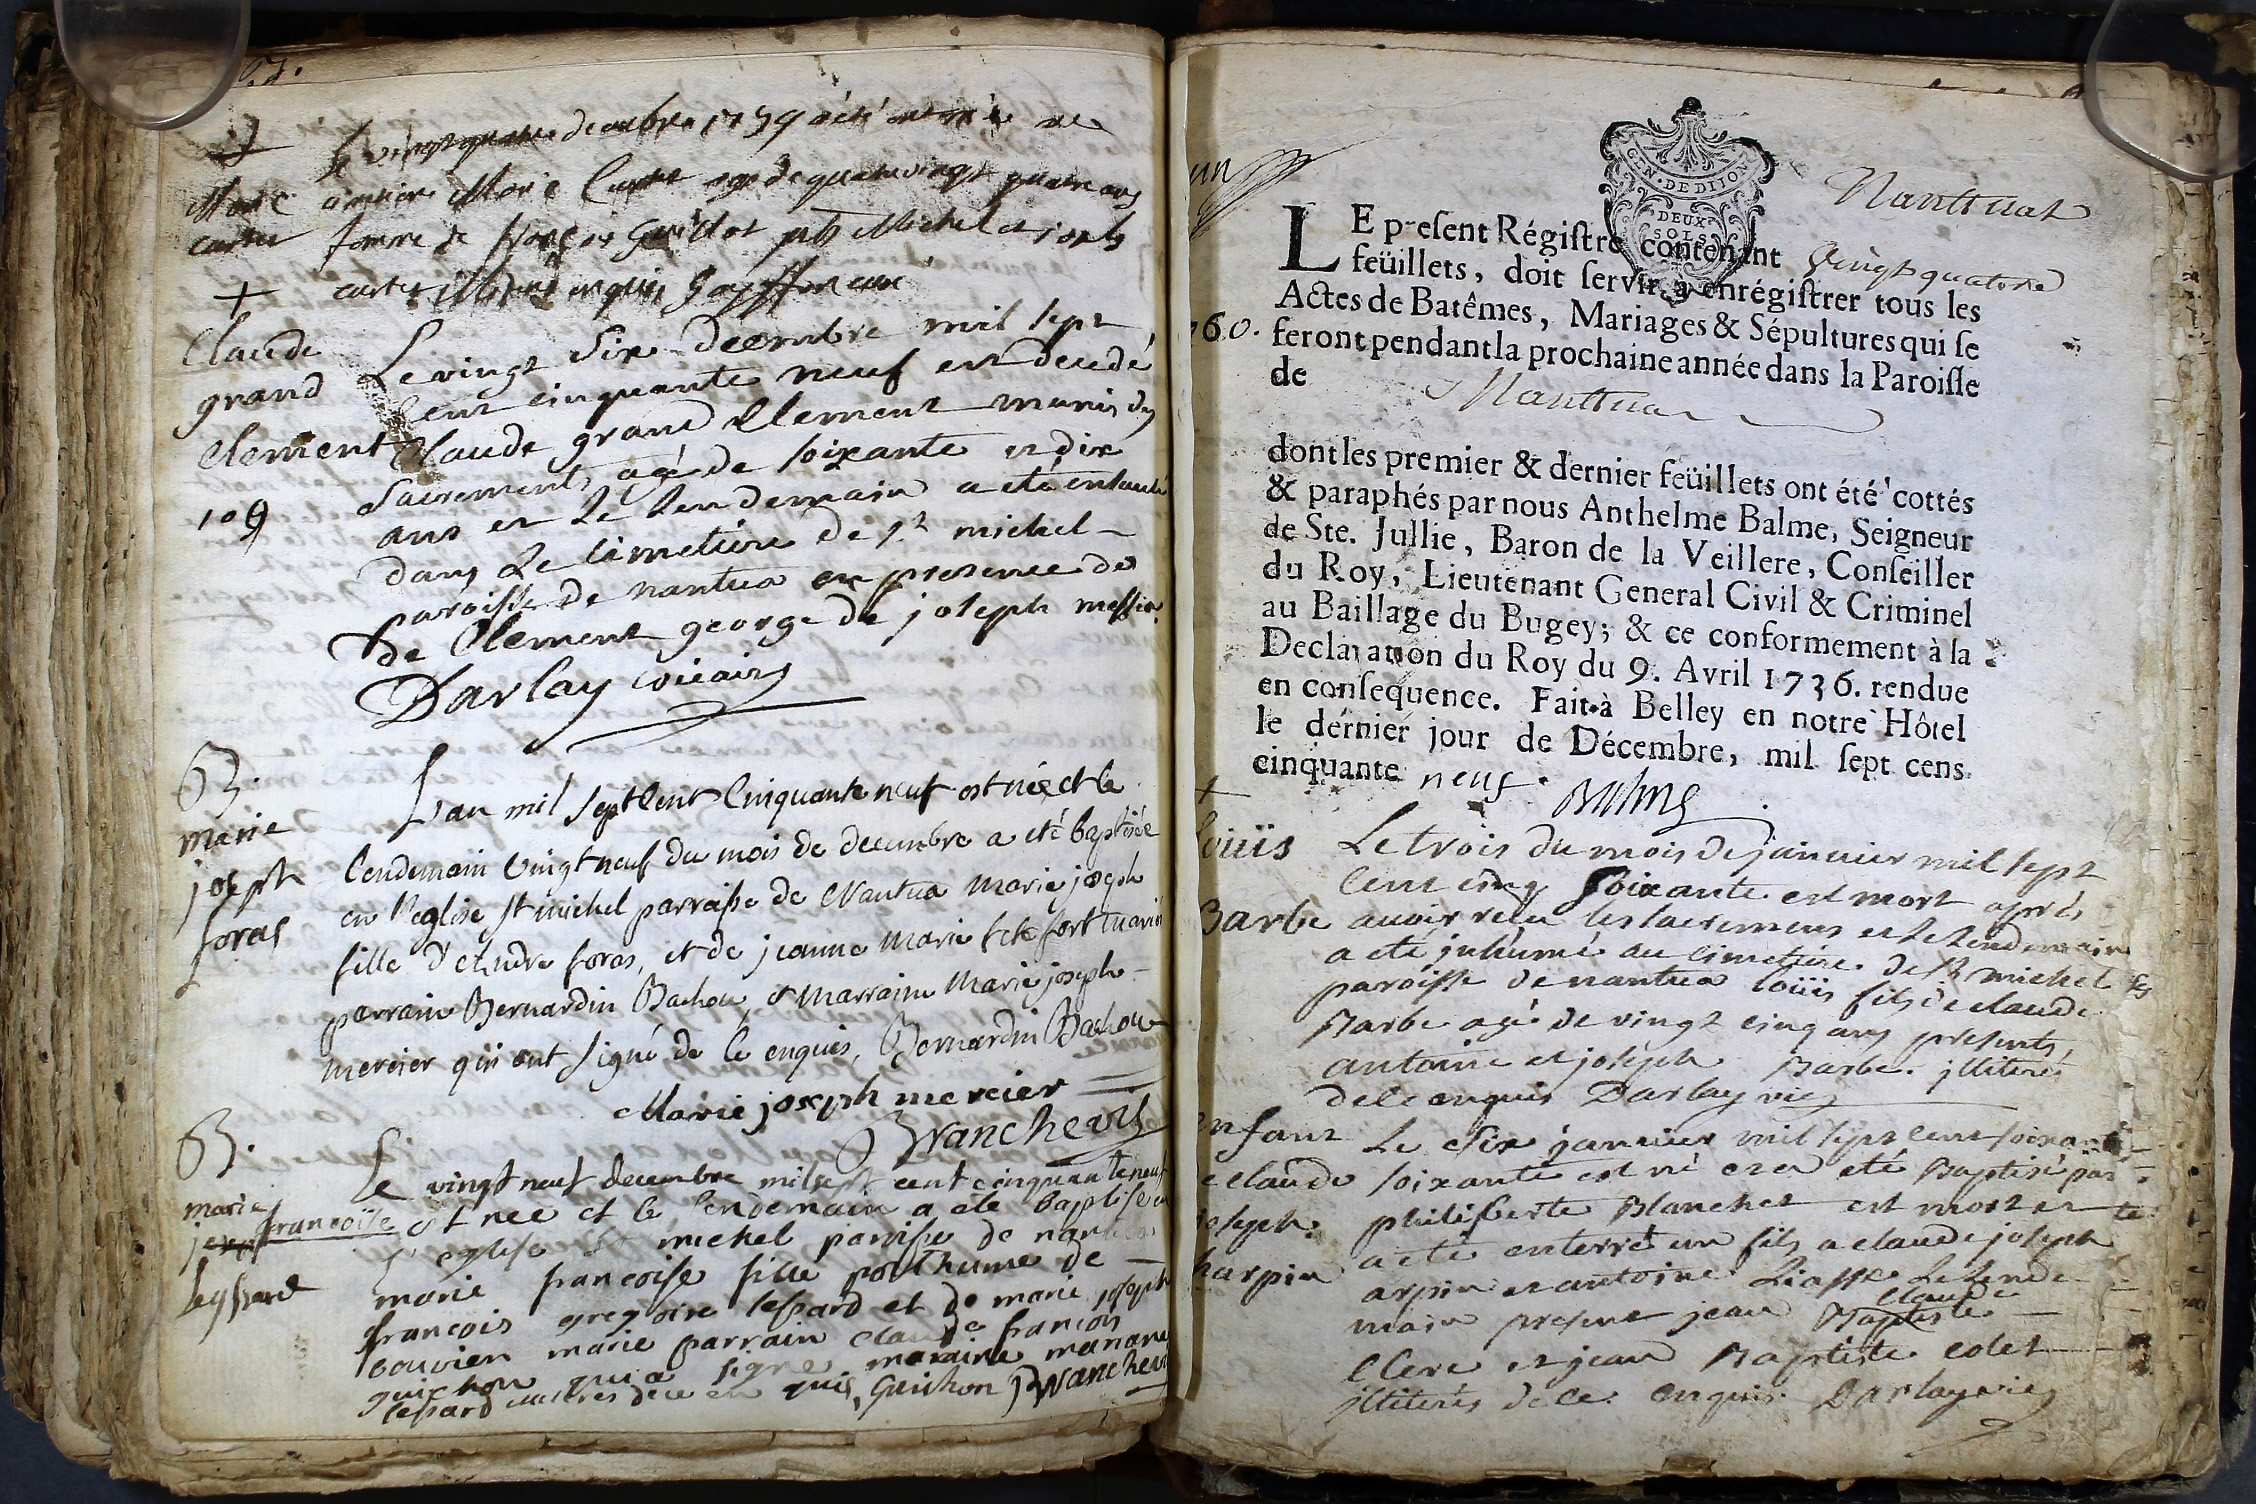 Marie
cartier
+
Le vingt quatre decembre 1759 a été enterrée
Marie Cartier agé de quatre vingt quatre ans
femme de françois Guillot pnts Michel et joseph
cartier illiterés enquis
Claude
grand
Clement
109
Le vingt Six decembre mil sept
Cent cinquante neuf est decedé
Claude grand Clement munis des
Sacrements agé de soixante et dix
ans et Le Lendemain a eté enterré
dans Le cimetiere de st michel
paroisse de nantua en presence de
de Clement george de joseph messin
Darlay vicaire
B.
marie
joseph
foras
L'an mil sept Cent Cinquante neuf est née et le
lendemain vingt neuf du mois de decembre a eté baptisée
en l'eglise st michel parroisse de Nantua marie joseph
fille d'andre foras, et de jeanne marie tete fort mariés
parrain Bernardin Bachou, & marraine Marie joseph
mercier qui ont signé de ce enquis, Bernardin Bachou
Marie joseph mercier
B.
marie
francoise
lespard
Le vingt neuf decembre mil sept cent cinquante neuf
est nee et le lendemain a ete baptisee en
l'eglise st michel paroisse de nantua
marie francoise fille posthume de
francois gregoire lespard et de marie joseph
bouvier marie parrain claude francois
guichon qui a signe maraine marianne
lespard illiteres de ce en quis, Guichon
GEN. DE DIJON
DEUX
SOLS
Nantuat
LE present Régistre contenant vingt quatorse
feüillets, doit servir à enrégistrer tous les
Actes de Batêmes, Mariages & Sépultures qui se
feront pendant la prochaine année dans la Paroisse
de Nantua
dont les premier & dernier feüillets ont été cottés
& paraphés par nous Anthelme Balme, Seigneur
de Ste. Jullie, Baron de la Veillere, Conseiller
du Roy, Lieutenant General Civil & Criminel
au Baillage du Bugey; & ce conformement à la
Declaration du Roy du 9. Avril 1736. rendue
en consequence. Fait à Belley en notre Hôtel
le dérnier jour de Décembre, mil sept cens
cinquante neuf.
Balme
760.
+
Loüis
Barbe
Le trois du mois de janvier mil sept
Cent cinq soixante est mort après
avoir reçu les sacremens et le lendemain
a eté inhumé au cimetiere de st michel
paroisse de nantua loüis fils de claude
Barbe agé de vingt cinq ans presents
antoine et joseph Barbe illiterés
de ce enquis Darlay vic
enfant
de claude
joseph
harpin
Le Six janvier mil sept cent soixante
soixante est né et a eté Baptisé par
philiberte Blanchet est mort et
a eté enterré un fils a claude joseph
arpin et antoine Liasse Le Lende
main present jean Baptiste claude
Clerc et jean Baptiste colet
illiterés de ce enquis Darlay vic